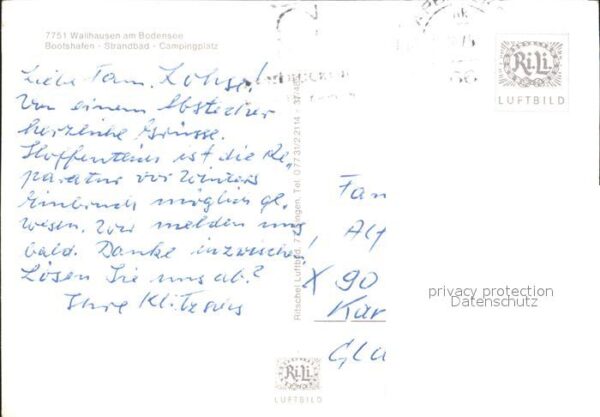 7751 Wallhausen am Bodensee
Bootshafen - Strandbad - Campingplatz
RiLi
LUFTBILD
Liebe Fam.
Von einem Abstecher
herzliche Grüsse.
Hoffentlich ist die Re„
paratur vor Winters
Einbruch möglich ge„
wesen. Wir melden uns
bald. Danke inzwischen!
Lösen Sie uns ab?
Ihre
Ritschel Luftbild,
Fam
X 90
Kar
privacy protection
Datenschutz
RiLi
LUFTBILD